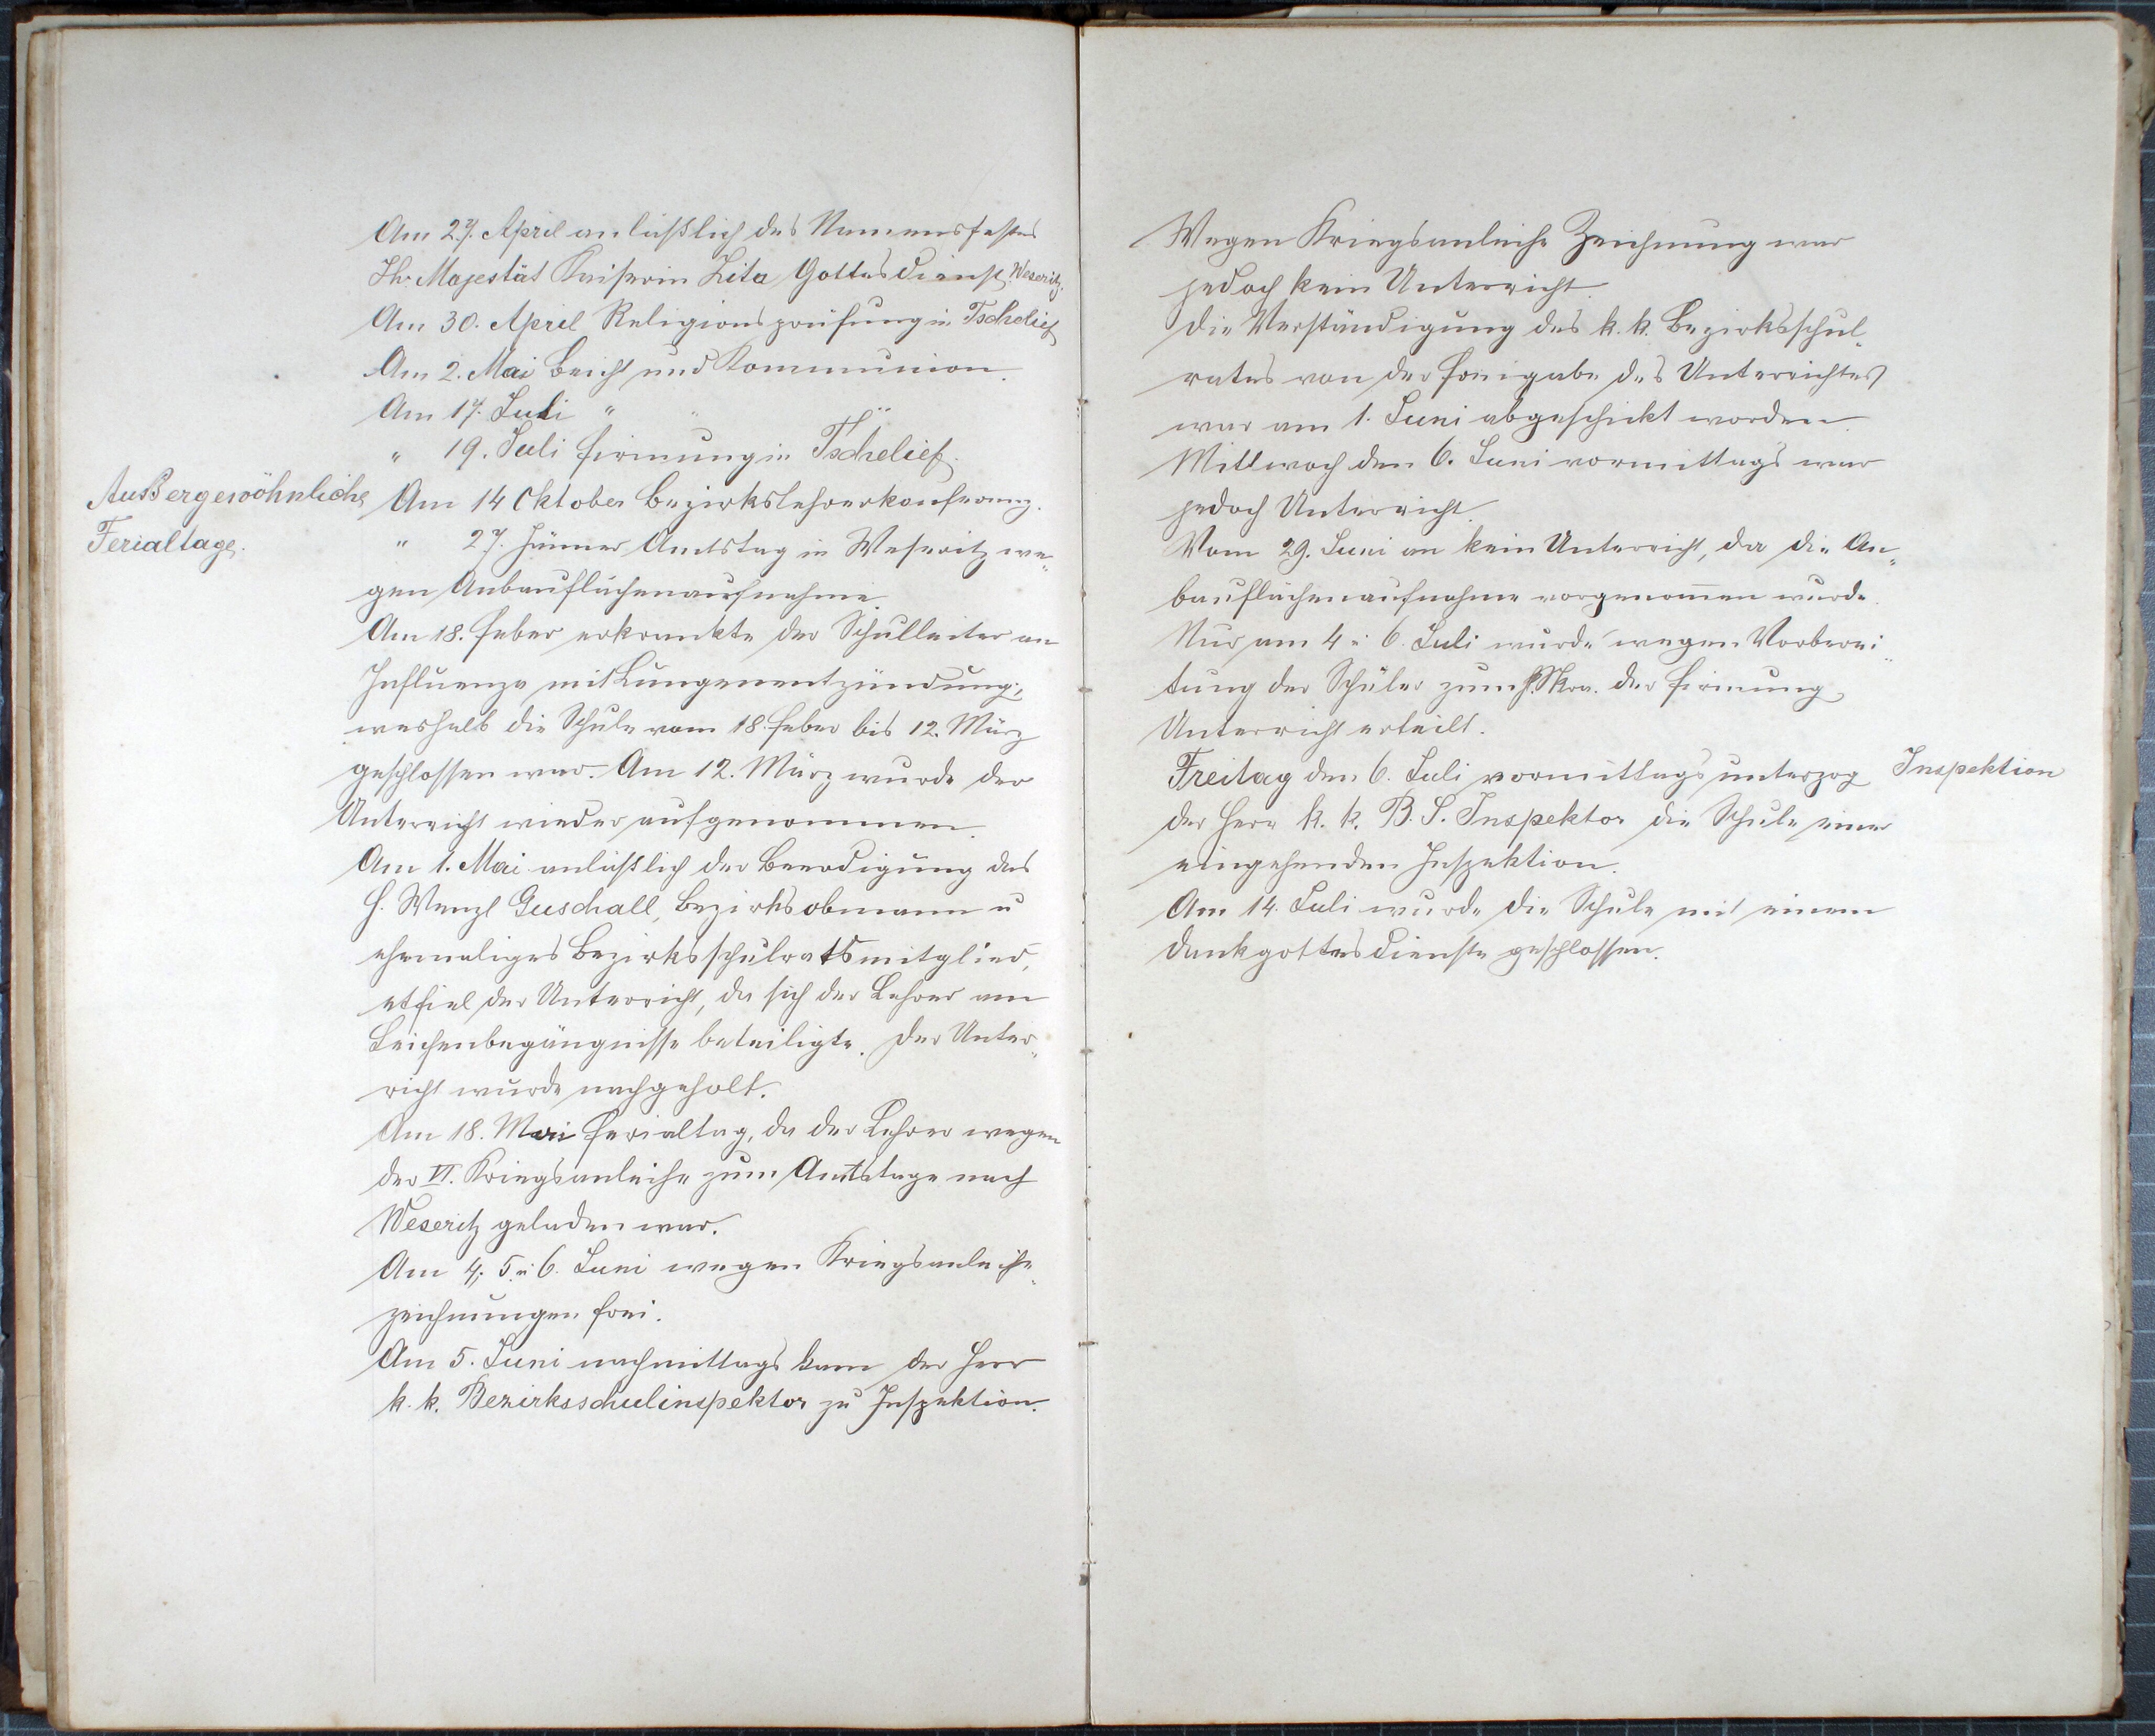 Am 27. April anläßlich des Namensfestes
Ihr. Majestät Kaiserin Zita Gottesdienst. Weseritz.
Am 30. April Religionsprüfung in Tschelief
Am 2. Mai Beicht und Kommunion.
Am 17. Juli " " "
" 19. Juli Firmung in Tschelief.
Außergewöhnliche
Ferialtage.
Am 14 Oktober Bezirkslehrerkonferenz.
" 27. Jänner Amtstag in Weseritz we„
gen Anbauflächenaufnahme.
Am 18. Feber erkrankte der Schulleiter an
Influenza mit Lungenentzündung,
weshalb die Schule vom 18. Feber bis 12. März
geschlossen war. Am 12. März wurde der
Unterricht wieder aufgenommen.
Am 1. Mai anläßlich der Beerdigung des
H. Wenzl Guschall, Bezirksobmann u
ehemaliges Bezirksschulratsmitglied,
etfiel der Unterricht, da sich der Lehrer am
Leichenbegängnisse beteiligte. Der Unter„
richt wurde nachgeholt.
Am 18. Mai Ferialtag, da der Lehrer wegen
der VI. Kriegsanleihe zum Amtstage nach
Weseritz geladen war.
Am 4; 5. u 6. Juni wegen Kriegsanleihe„
zeichnungen frei.
Am 5. Juni nachmittags kam der Herr
k. k. Bezirksschulinspektor zu Inspektion.
Wegen Kriegsanleihe Zeichnung war
jedoch kein Unterricht.
Die Verständigung des k. k. Bezirksschul„
rates von der Freigabe des Unterrichtes
war am 1. Juni abgeschickt worden.
Mittwoch den 6. Juni vormittags war
jedoch Unterricht.
Vom 29. Juni an kein Unterricht, da die An„
bauflächenaufnahme vorgenom̅en wurde.
Nur am 4 u 6. Juli wurde wegen Vorberei„
tung der Schüler zum h. Skra. der Firmung
Unterricht erteilt.
Freitag den 6. Juli vormittags unterzog
Inspektion
der Herr k. k. B. S. Inspektor die Schule einer
eingehenden Inspektion.
Am 14. Juli wurde die Schule mit einem
Dankgottesdienste geschlossen.